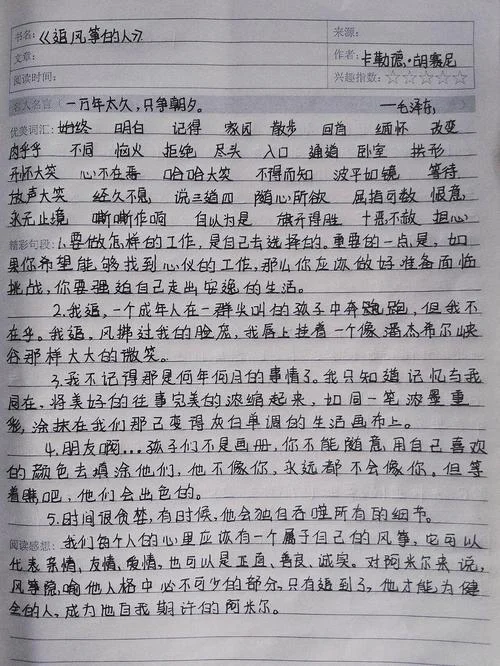 书名:《追风筝的人》 来源:
文章: 作者:卡勒德·胡赛尼
阅读时间: 兴趣指数:☆☆☆☆☆
名人名言(一万年太久,只争朝夕。 ——毛泽东)
优美词汇:始终 明白 记得 家园 散步 回首 缅怀 改变
肉乎乎 不同 恼火 拒绝 尽头 入口 通道 卧室 拱形
开怀大笑 心不在焉 哈哈大笑 不得而知 波平如镜 等待
放声大笑 经久不息 说三道四 随心所欲 屈指可数 恨意
永无止境 嘶嘶作响 自以为是 旗开得胜 十恶不赦 担心
精彩句段:1.要做怎样的工作,是自己去选择的。重要的一点是,如
果你希望能够找到心仪的工作,那么你应该做好准备面临
挑战,你要强迫自己走出安逸的生活。
2.我追,一个成年人在一群尖叫的孩子中奔跑,但我不
在乎。我追,风拂过我的脸庞,我唇上挂着一个像潘杰希尔峡
谷那样大大的微笑。
3.我不记得那是何年何月的事情了。我只知道记忆与我
同在,将美好的往事完美的浓缩起来,如同一笔浓墨重
彩,涂抹在我们那已变得灰白单调的生活画布上。
4.朋友啊...孩子们不是画册,你不能随意用自己喜欢
的颜色去填涂他们,他不像你,永远都不会像你。但等
着瞧吧,他们会出色的。
5.时间很贪婪,有时候,他会独自吞噬所有的细节。
阅读感想:我们每个人的心里应该有一个属于自己的风筝,它可以
代表亲情、友情、爱情,也可以是正直、善良、诚实。对阿米尔来说,
风筝隐喻他人格中必不可少的部分,只有追到了,他才能为健
全的人,成为他自我期许的阿米尔。